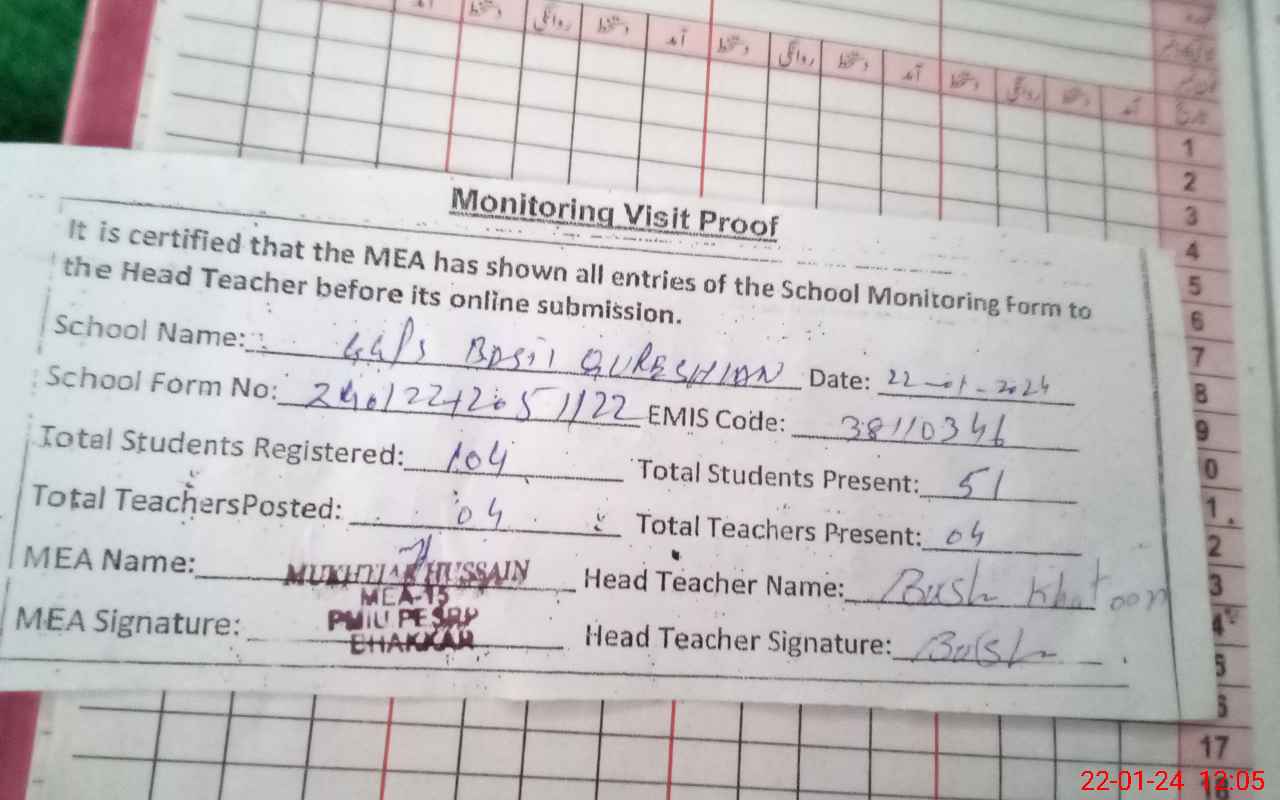 آمد دستخط روانگی دستخط آمد دستخط روانگی دستخط آمد دستخط روانگی دستخط آمد
1
2
3
4
5
6
7
8
9
0
1
2
3
4
5
6
17
18
Monitoring Visit Proof
It is certified that the MEA has shown all entries of the School Monitoring Form to
the Head Teacher before its online submission.
School Name: GGPS BASTI QURESHIAN Date: 22-01-2024
School Form No: EMIS Code: 38110346
Total Students Registered: 104 Total Students Present: 51
Total TeachersPosted: 04 Total Teachers Present: 04
MEA Name: MUKHTIAR HUSSAIN Head Teacher Name: Bush Khatoon
MEA-15
PMIU PESRP
MEA Signature: BHAKKAR Head Teacher Signature: Bush
22-01-24 12:05